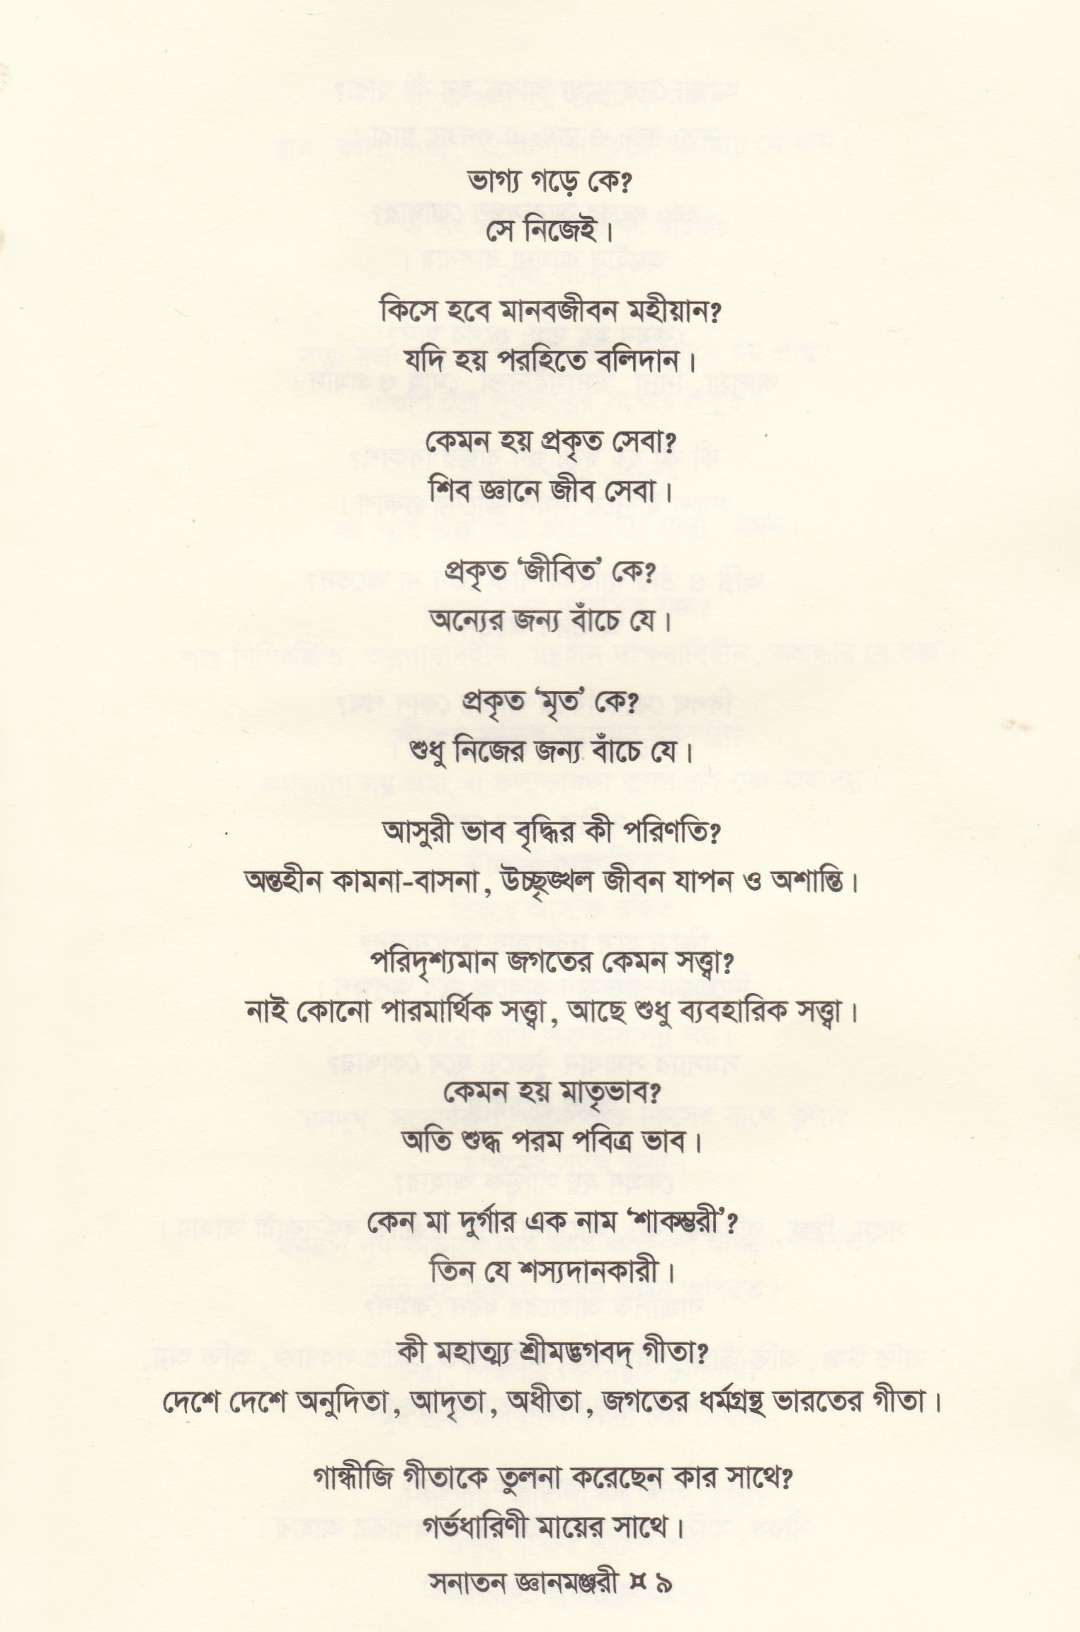 ভাগ্য গড়ে কে?
সে নিজেই।
কিসে হবে মানবজীবন মহীয়ান?
যদি হয় পরহিতে বলিদান।
কেমন হয় প্রকৃত সেবা?
শিব জ্ঞানে জীব সেবা।
প্রকৃত ‘জীবিত’ কে?
অন্যের জন্য বাঁচে যে।
প্রকৃত ‘মৃত’ কে?
শুধু নিজের জন্য বাঁচে যে।
আসুরী ভাব বৃদ্ধির কী পরিণতি?
অন্তহীন কামনা-বাসনা, উচ্ছৃঙ্খল জীবন যাপন ও অশান্তি।
পরিদৃশ্যমান জগতের কেমন সত্ত্বা?
নাই কোনো পারমার্থিক সত্ত্বা, আছে শুধু ব্যবহারিক সত্ত্বা।
কেমন হয় মাতৃভাব?
অতি শুদ্ধ পরম পবিত্র ভাব।
কেন মা দুর্গার এক নাম ‘শাকম্ভরী’?
তিন যে শস্যদানকারী।
কী মহাত্ম্য শ্রীমদ্ভগবদ্ গীতা?
দেশে দেশে অনুদিতা, আদৃতা, অধীতা, জগতের ধর্মগ্রন্থ ভারতের গীতা।
গান্ধীজি গীতাকে তুলনা করেছেন কার সাথে?
গর্ভধারিণী মায়ের সাথে।
সনাতন জ্ঞানমঞ্জরী ¤ ৯